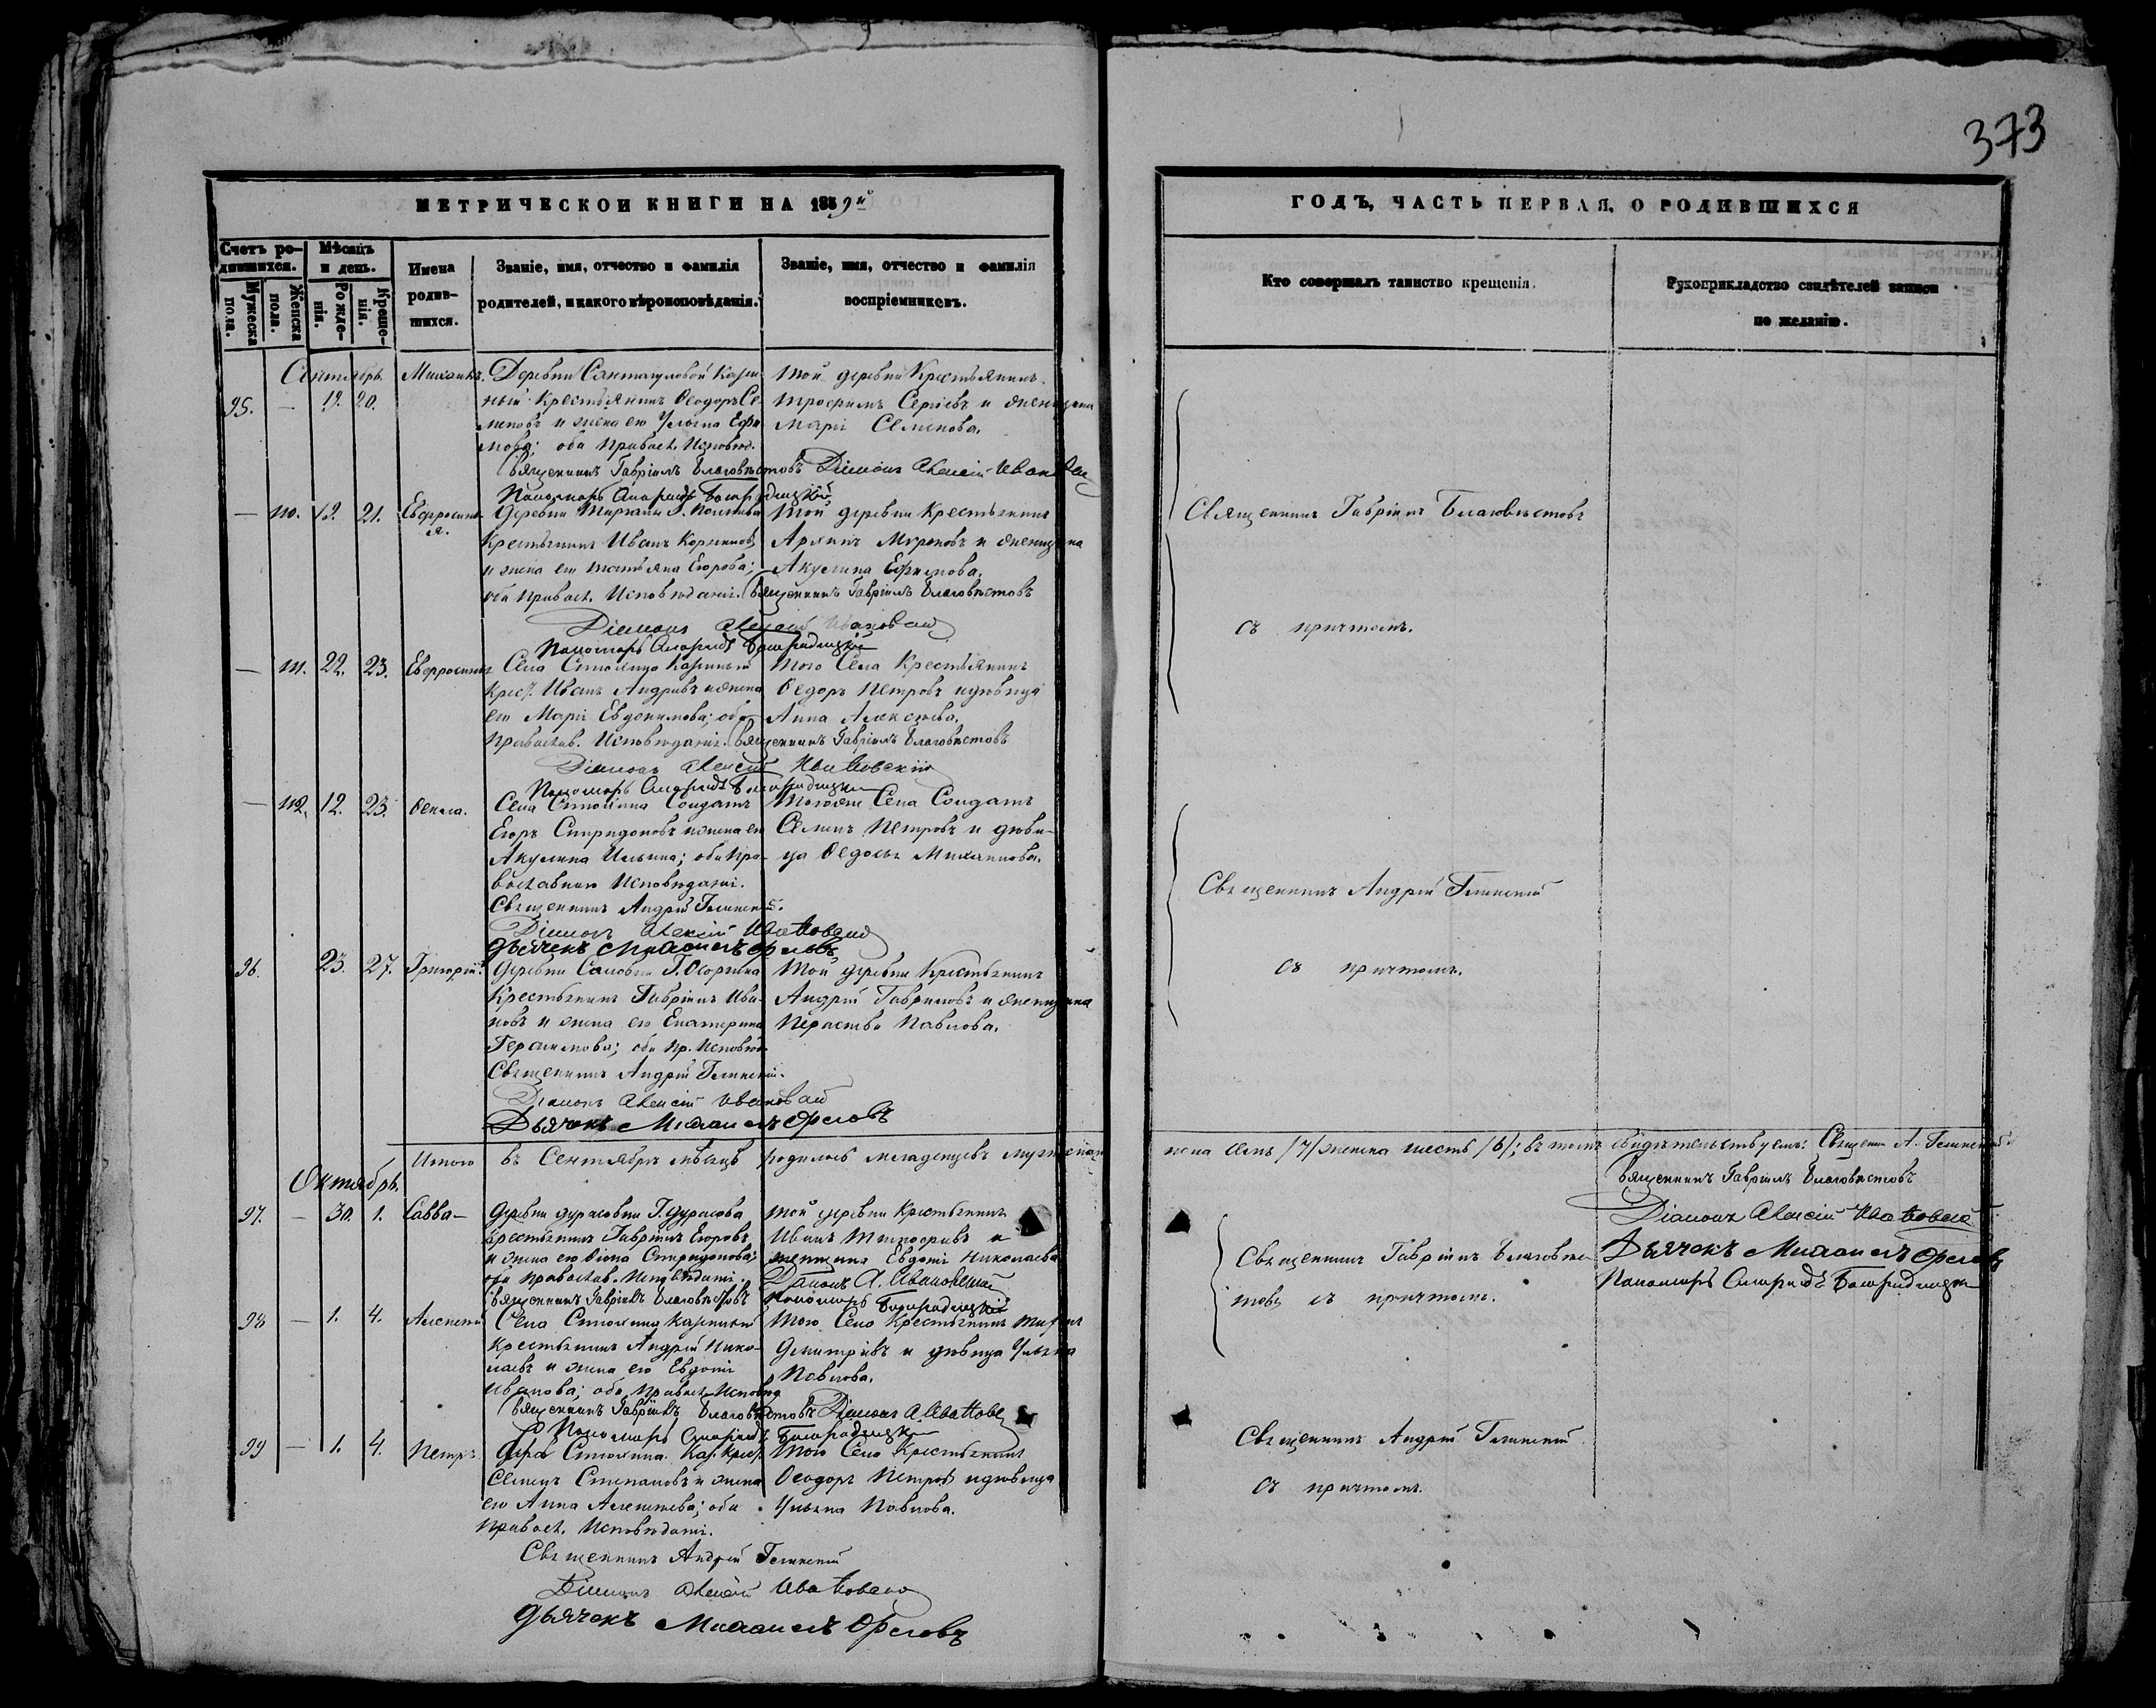 373
МЕТРИЧЕСКОЙ КНИГИ НА 1859й
ГОДЪ, ЧАСТЬ ПЕРВАЯ, О РОДИВШИХСЯ
Счетъ родившихся.
Мужеска пола.
Женска пола.
Мѣсяцъ и день.
Рожденія.
Крещенія.
Имена родившихся.
Званіе, имя, отчество и фамилія
родителей, и какого вѣроисповѣданія.
Званіе, имя, отчество и фамилія
воспріемниковъ.
Кто совершалъ таинство крещенія.
Рукоприкладство свидѣтелей записи
по желанію.
Сентябрь. Михаилъ. Деревни Казен- Той деревни Крестьянинъ
95. — 19. 20. ный Крестьянинъ Ѳеодоръ Се- Трофимъ Сергѣевъ и женщина
меновъ и жена его Ульяна Ефи- Марія Семенова.
мова; оба Правосл. Исповѣд.
Священникъ Гавріилъ Благовѣстовъ Діаконъ Алексій Ивановскій
Пономарь
— 110. 19. 21. Евфросинія. Деревни Г. Той деревни Крестьянинъ
Крестьянинъ Иванъ Архипъ Мироновъ и женщина
и жена его Татьяна Егорова; Акулина Ефимова.
оба Правосл. Исповѣданія. Священникъ Гавріилъ Благовѣстовъ
Діаконъ Алексій Ивановскій
Пономарь
Священникъ Гавріилъ Благовѣстовъ
съ причтомъ.
— 111. 22. 23. Евфросинія Села Казенный Того Села Крестьянинъ
Крест. Иванъ Андреевъ и жена Ѳедоръ Петровъ и дѣвица
его Марія Евдокимова; оба Анна Алексѣева.
Православ. Исповѣданія. Священникъ Гавріилъ Благовѣстовъ
Діаконъ Алексій Ивановскій
Пономарь
— 112. 12. 23. Ѳекла. Села Солдатъ Тогоже Села Солдатъ
Егоръ Спиридоновъ и жена его Семенъ Петровъ и дѣви-
Акулина Ильина; оба Пра- ца Ѳедосья Михаилова.
вославнаго Исповѣданія.
Священникъ Андрей Глинскій.
Діаконъ Алексій Ивановскій
Дьячекъ Михаилъ Орловъ
Священникъ Андрей Глинскій
съ причтомъ.
96. 23. 27. Григорій. Деревни Г. Той деревни Крестьянинъ
Крестьянинъ Гавріилъ Ива- Андрей Гавриловъ и женщина
новъ и жена его Екатерина Параскева Павлова.
Герасимова; оба Пр. Исповѣд.
Священникъ Андрей Глинскій.
Діаконъ Алексій Ивановскій
Дьячекъ Михаилъ Орловъ
Итого въ Сентябрѣ мѣсяцѣ родилось младенцевъ мужеска
пола семь /7/ женска шесть /6/; въ томъ свидѣтельствуемъ: Священ. А. Глинскій
Священникъ Гавріилъ Благовѣстовъ
Діаконъ Алексій Ивановскій
Дьячекъ Михаилъ Орловъ
Пономарь
Октябрь.
97. — 30. 1. Савва — Деревни Дурасовки Г. Дурасова Той деревни Крестьянинъ
Крестьянинъ Гавріилъ Егоровъ Иванъ Тимофеевъ и
и жена его Спиридонова; женщина Евдокія Николаева
оба Православ. Исповѣданія. Діаконъ А. Ивановскій
Священникъ Гавріилъ Благовѣстовъ Пономарь
Священникъ Гавріилъ Благовѣс-
товъ съ причтомъ.
98 — 1. 4. Алексѣй Села Казенный Того Села Крестьянинъ
Крестьянинъ Андрей Нико- Димитріевъ и дѣвица Ульяна
лаевъ и жена его Евдокія Павлова.
Иванова; оба Правосл. Исповѣд.
Священникъ Гавріилъ Благовѣстовъ Діаконъ А. Ивановс
Пономарь
99 — 1. 4. Петръ. Каз. Крест. Того Села Крестьянинъ
Семенъ Степановъ и жена Ѳеодоръ Петровъ и дѣвица
его Анна Алексѣева; оба Ульяна Павлова.
Правосл. Исповѣданія.
Священникъ Андрей Глинскій
Діаконъ Алексій Ивановскій
Дьячекъ Михаилъ Орловъ
Священникъ Андрей Глинскій
съ причтомъ.